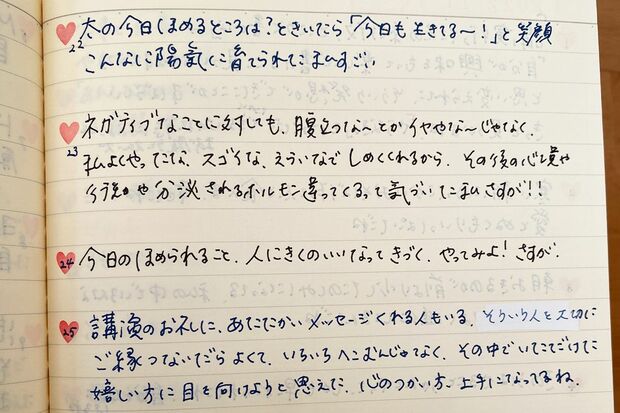 22 太の今日ほめるところは?ときいたら「今日も生きてる〜!」と笑顔
こんなに陽気に育てられたまゆすごい
23 ネガティブなことに対しても、腹立つな〜とかイヤやな〜じゃなく、
私よくやってたな、スゴイな、えらいなで しめくくれるから、その後の心境や
行動や分泌されるホルモン違ってくるって気づいたまゆさすが!!
24 今日のほめられること、人にきくのいいなってきづく、やってみよ!さすが、
25 講演のお礼に、あたたかいメッセージくれる人もいる、そういう人を大切に
ご縁つないだらよくて、いろいろへこむんじゃなく、その中でいただけた
嬉しい方に目を向けようと思えた、心のつかい方、上手になってるね、